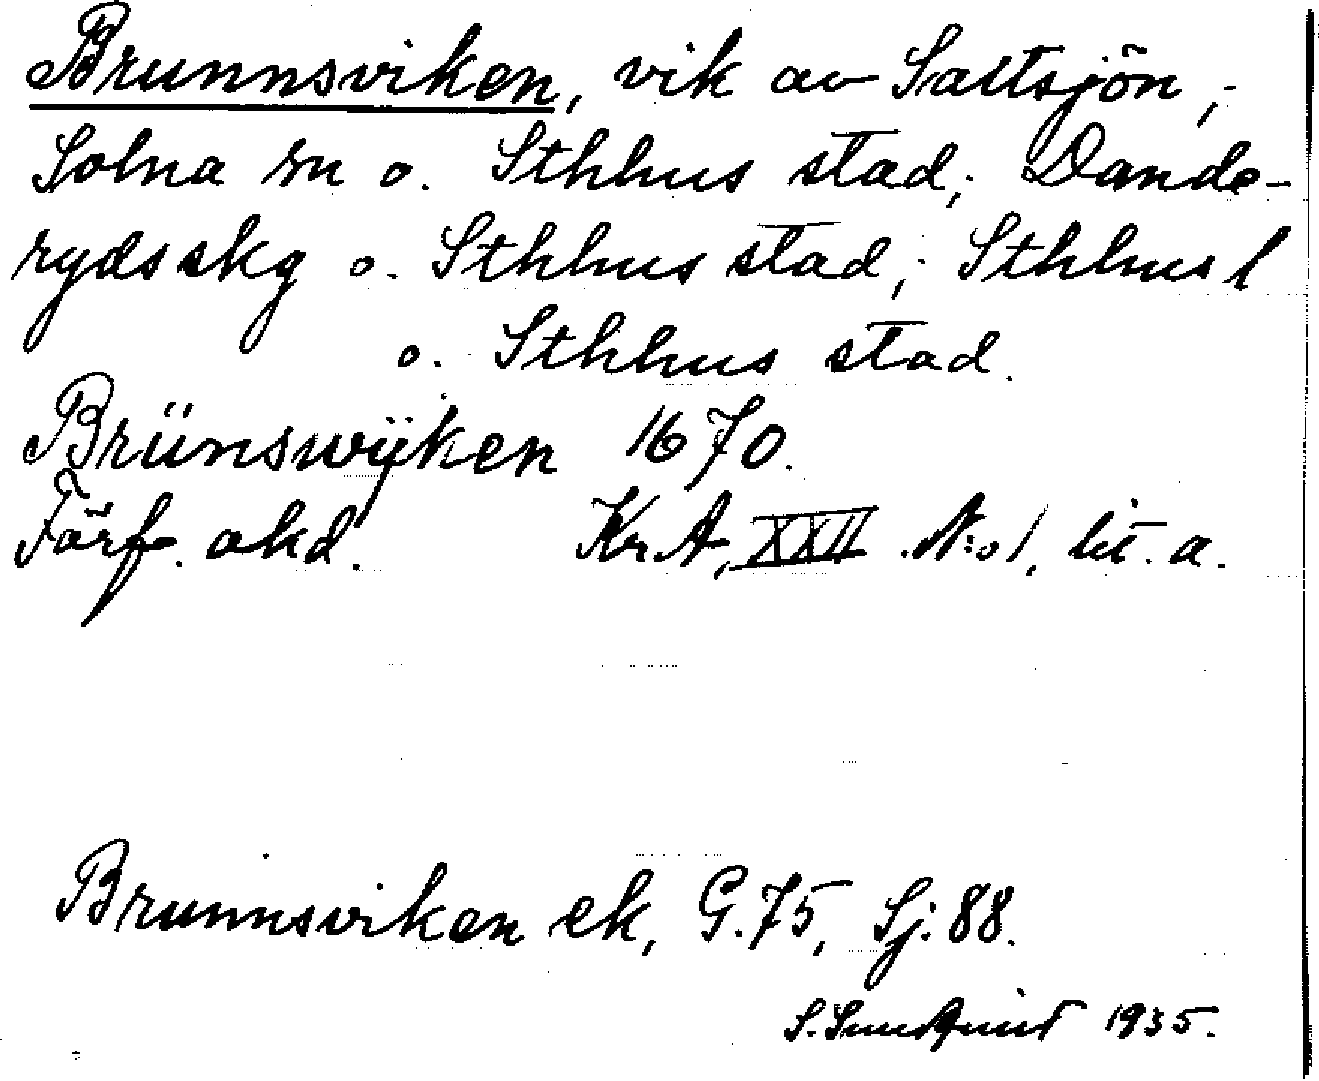 Brunnsviken, vik av Saltsjön,;
Solna sn o. Sthlms stad; Dande-
rydsskg o. Sthlms stad; Sthlms l
o. Sthlms stad.
Brünswijken 1670.
Förf. okd. KrA, XXII N:o 1, lit. a.
Brunnsviken ek, G. 75, Sj. 88.
S. Sundquist 1935.